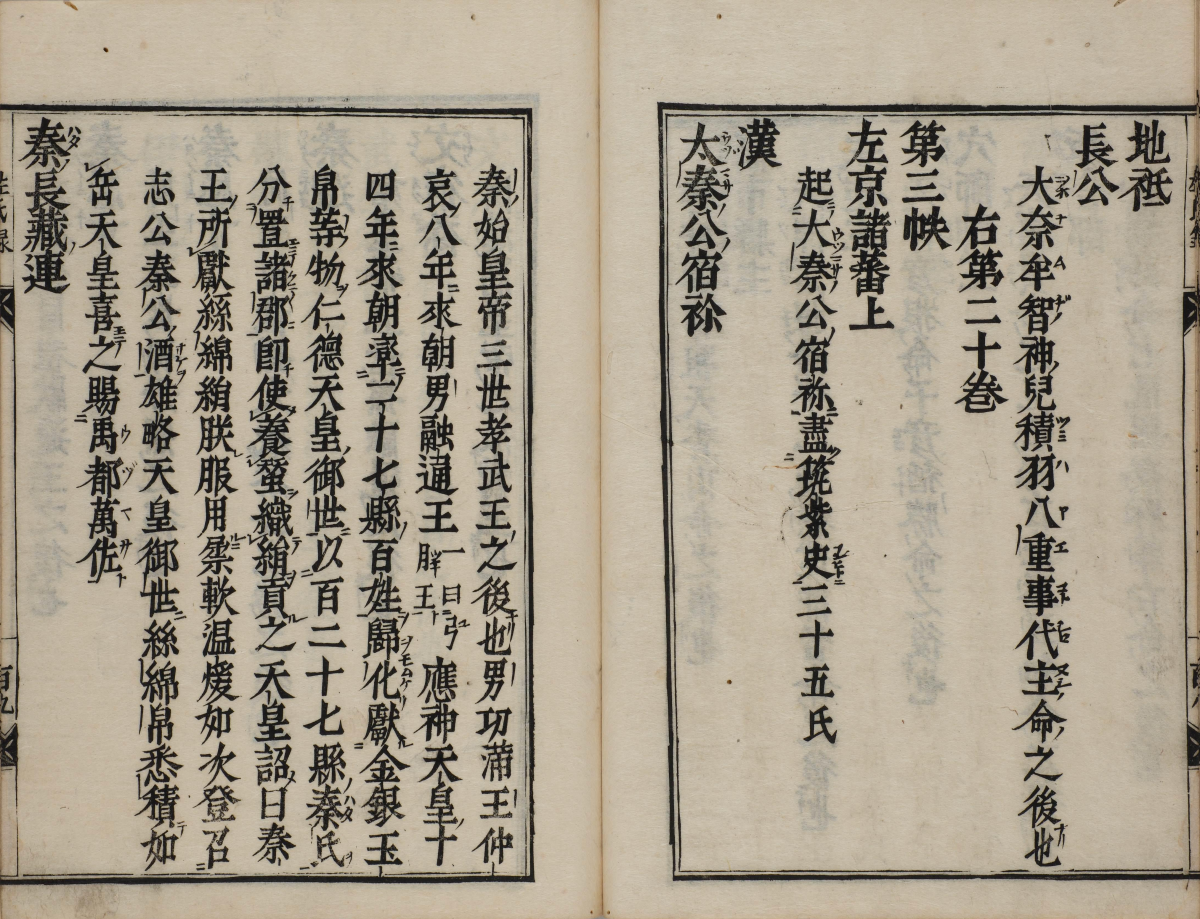 地祇
長公
大奈牟智神兒積羽八重事代主命之後也
右第二十巻
第三帙
左京諸蕃上
起大秦公宿祢盡筑紫史三十五氏
漢
太秦公宿祢
秦始皇帝三世孝武王之後也男功滿王仲
哀八年來朝男融通王一曰弓䏦王應神天皇十
四年來朝率二十七縣百姓歸化獻金銀玉
帛等物仁德天皇御世以百二十七縣秦氏
分置諸郡卽使養蚕織絹貢之天皇詔曰秦
王所獻絲綿絹朕服用柔軟温煖如次登召
志公秦公酒雄略天皇御世絲綿帛悉積如
岳天皇喜之賜禹都萬佐
秦長藏連